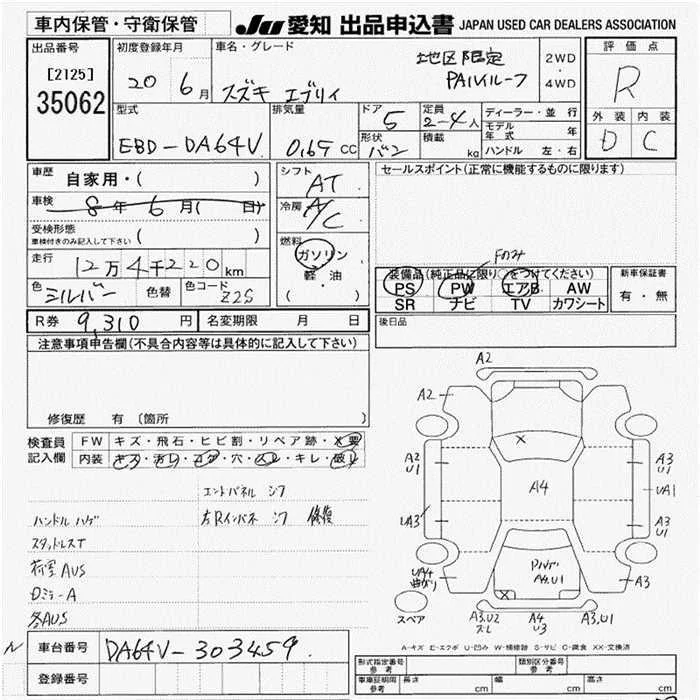 車内保管・守衛保管
JU 愛知 出品申込書 JAPAN USED CAR DEALERS ASSOCIATION
出品番号
[2125]
35062
初度登録年月
20 6月
車名・グレード
スズキ エブリイ
地区限定
PAハイルーフ
2WD
・
4WD
評価点
R
外装 内装
D C
型式
EBD-DA64V
排気量
0.65 CC
ドア 5
形状 バン
定員 2-4人
積載 kg
ディーラー・並行
モデル年式 年
ハンドル 左・右
車歴 自家用・( )
車検 8年 6月( 日)
受検形態
車検付きのみ記入して下さい ( )
走行 12万4千220km
色 シルバー 色替 色コード Z2S
シフト AT
冷房 A/C
燃料
ガソリン
軽・油
( ・ )
セールスポイント(正常に機能するものに限ります)
Fのみ
装備品(純正品に限り○をつけてください)
PS PW エアB AW
SR ナビ TV カワシート
新車保証書
有・無
後日品
R券 9,310円 名変期限 月 日
注意事項申告欄(不具合内容等は具体的に記入して下さい)
修復歴 有 〔箇所 〕
検査員記入欄
FW キズ・飛石・ヒビ割・リペア跡・X要
内装 キズ・汚れ・コゲ・穴・スレ・キレ・破れ
エンドパネル シワ
ハンドル ハゲ 左Rインパネ シワ 修復
スタッドレスT
荷室AUS
Dミラ-A
各AUS
A2
A2
A2
U1
UA3
A4
A3
U1
UA1
A3
U1
UA4
曲がり
A4.U1
A3
スペア
A3.U2
スレ
A4
U3
A3.U1
A-キズ E-エクボ U-凹み W-補修跡 S-サビ C-腐食 XX-交換済
N
車台番号 DA64V-303459
登録番号
形式指定番号
参考
類別区分番号
参考
車庫証明用
参考
長さ cm 幅 cm 高さ cm